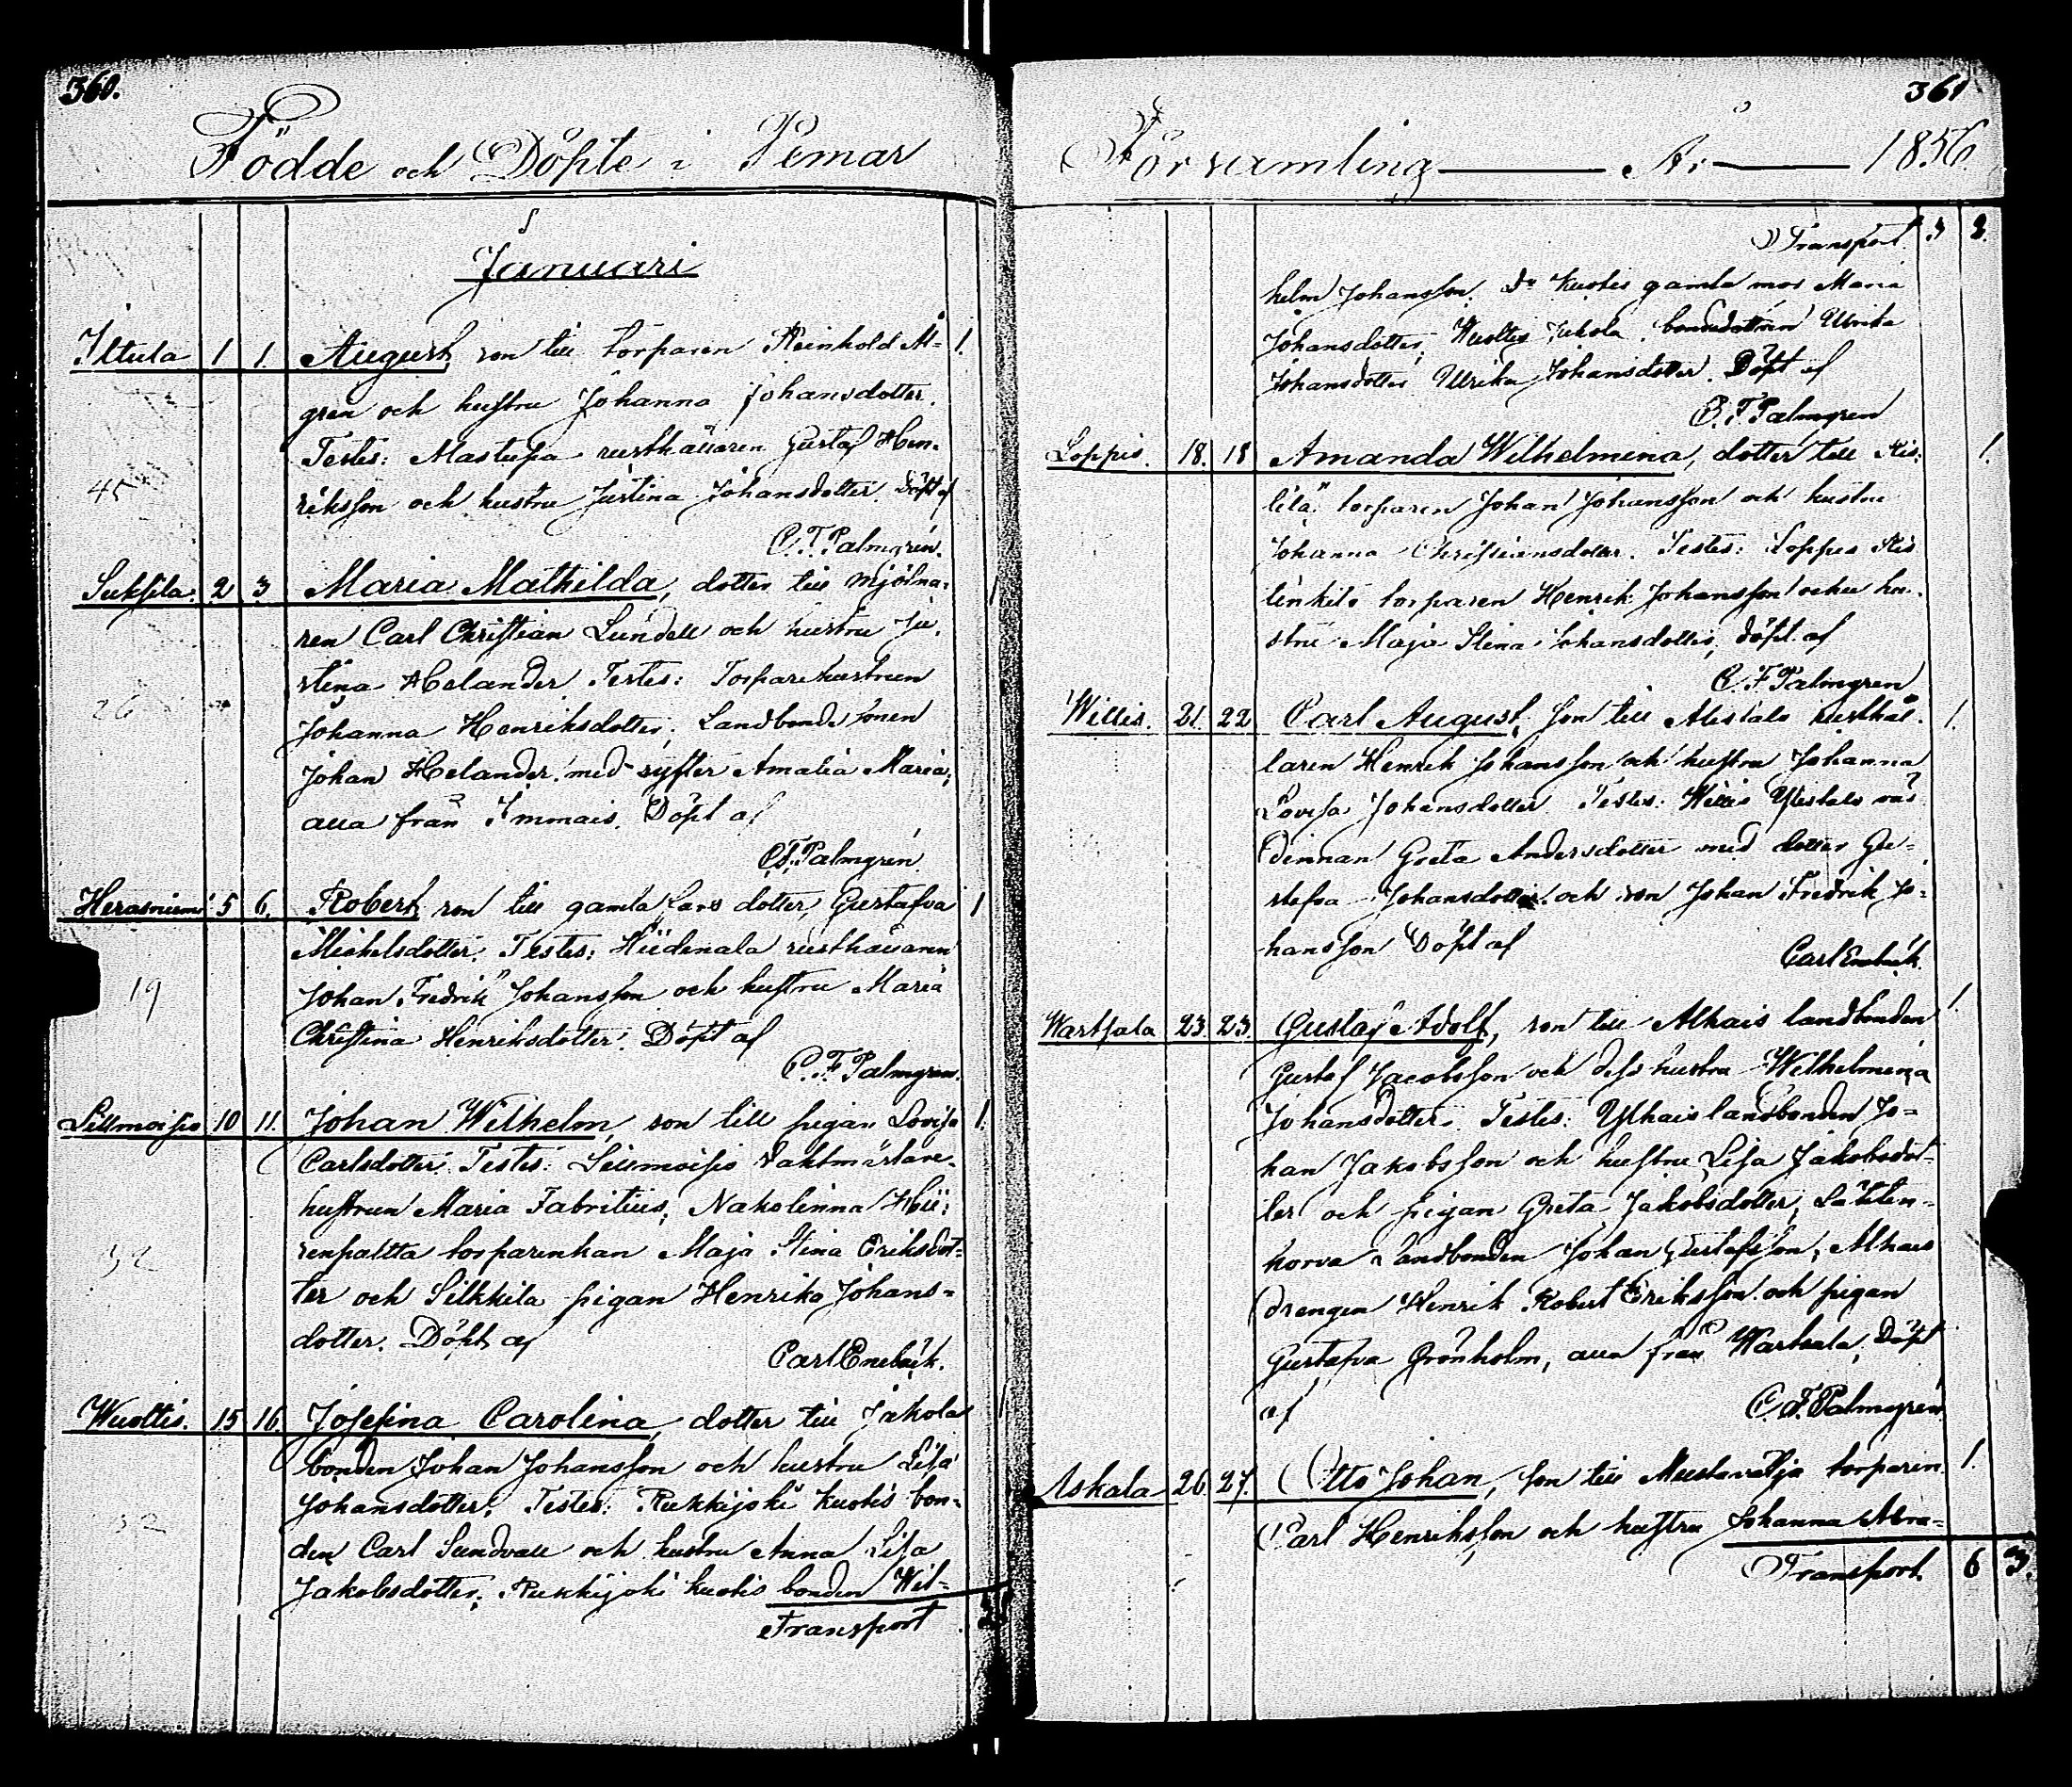 360.
Födde och Döpte i Pemar
Januari
Iltula 1 1. August, son till torparen Reinhold Al= 1.
gren och hustru Johanna Johansdotter.
Testes: Mastupa rusthållaren Gustaf Hen-
45
riksson och hustru Justina Johansdotter. Döpt af
C. F. Palmgren.
Suksela. 2 3 Maria Mathilda, dotter till mjölna- 1
ren Carl Christian Lundell och hustru Ju-
stina Helander. Testes: Torparehustrun
26
Johanna Henriksdotter, Landbonde sonen
Johan Helander, med syster Amalia Maria,
alla från Immais. Döpt af
C. F. Palmgren.
5 6. Robert, son till gamla Lars dotter, Gustafva 1
Michelsdotter. Testes: Hiidenala rusthållaren
19
Johan Fredrik Johansson och hustru Maria
Christina Henriksdotter. Döpt af
C. F. Palmgren.
10 11. Johan Wilhelm, son till pigan Lovisa 1.
Carlsdotter. Testes: vaktmästare-
hustrun Maria Fabritius, Nakolinna
torparenkan Maja Stina Eriksdot-
ter och Silkkila pigan Henrika Johans-
dotter. Döpt af
Carl Enebäck.
Wuoltis. 15 16. Josefina Carolina, dotter till Jukola
bonden Johan Johansson och hustru Lisa
Johansdotter. Testes: Rukkijoki Kuotis bon-
den Carl Sundvall och hustru Anna Lisa
Jakobsdotter, Rukkijoki Kuotis bonden Wil-
Transport
361
Församling År 1856.
Transport. 3 2.
helm Johansson. Do Kuotis gamla mor Maria
Johansdotter, Wuoltis Jukola bondedottren Ulrika
Johansdotter Ullrika Johansdotter. Döpt af
C. F. Palmgren
Loppis. 18. 18 Amanda Wilhelmina, dotter till Ris- 1.
lilä torparen Johan Johansson och hustru
Johanna Christiansdotter. Testes: Loppis
torparen Henrik Johansson och hu-
stru Maja Stina Johansdotter, döpt af
C. F. Palmgren
Willis. 21. 22. Carl August, son till Alistalo rusthål- 1.
laren Henrik Johansson och hustru Johanna
Lovisa Johansdotter. Testes: Willis Ylistalo vär-
dinnan Greta Andersdotter med dotter Gu-
stafva Johansdotter och son Johan Fredrik Jo-
hansson Döpt af
Carl Enebäck.
Wartsala 23. 23. Gustaf Adolf, son till Alhais landbonden 1.
Gustaf Jacobsson och dess hustru Wilhelmina
Johansdotter. Testes: Ylhais landbonden Jo-
han Jakobsson och hustru Lisa Jakobsdot-
ter och pigan Greta Jakobsdotter, Lähteen-
korva landbonden Johan Gustafsson, Alhais
drengen Henrik Robert Eriksson och pigan
Gustafva Grönholm, alla från Wartsala, Döpt
af C. F. Palmgren
Askala 26. 27. Otto Johan, son till Mustavalja torparen 1.
Carl Henriksson och hustru Johanna Abra-
Transport. 6 3.